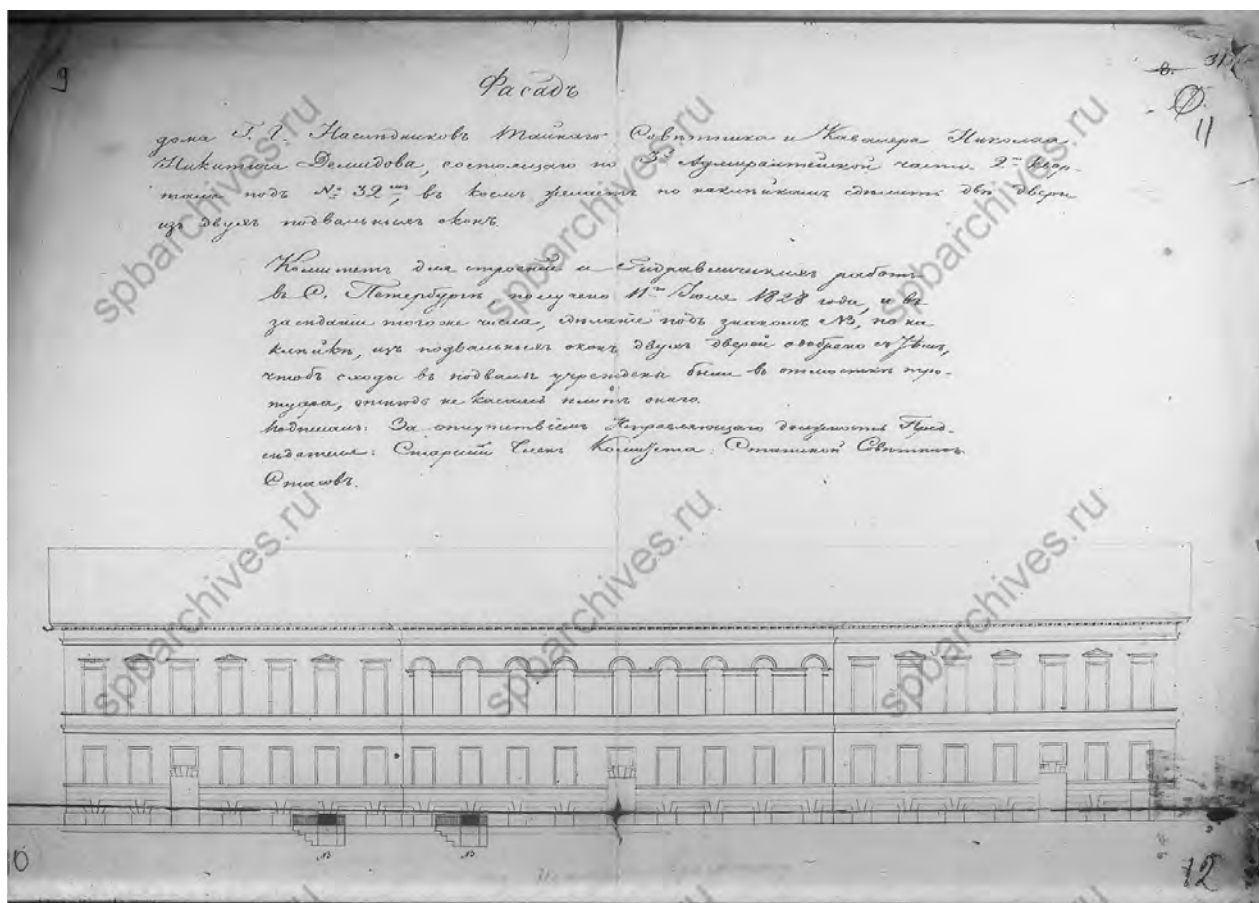 9
Фасадъ
31
11
дома Г. Г. Наслѣдниковъ Тайнаго Совѣтника и Кавалера Николая
Никитича Демидова, состоящаго по 3й Адмиралтейской части 2го квар-
тала подъ № 32мъ, въ коемъ желаетъ по наклейкамъ сдѣлать двѣ двери
изъ двухъ подвальныхъ оконъ.
Комитетъ для строеній и Гидравлическихъ работъ
въ С. Петербургѣ, получено 11го Іюля 1828 года, и въ
засѣданіи того же числа, сдѣланіе подъ знакомъ №, по на
клейкѣ, изъ подвальныхъ оконъ двухъ дверей одобрено съ тѣмъ,
чтобъ сходы въ подвалы учреждены были въ отмосткѣ тро-
туара, отнюдь не касаясь плитъ онаго.
Подписалъ: За отсутствіемъ Исправляющаго должность Пред-
сѣдателя: Старшій Членъ Комитета: Статской Совѣтникъ
Стасовъ.
spbarchives.ru
spbarchives.ru
spbarchives.ru
spbarchives.ru
spbarchives.ru
spbarchives.ru
10
12